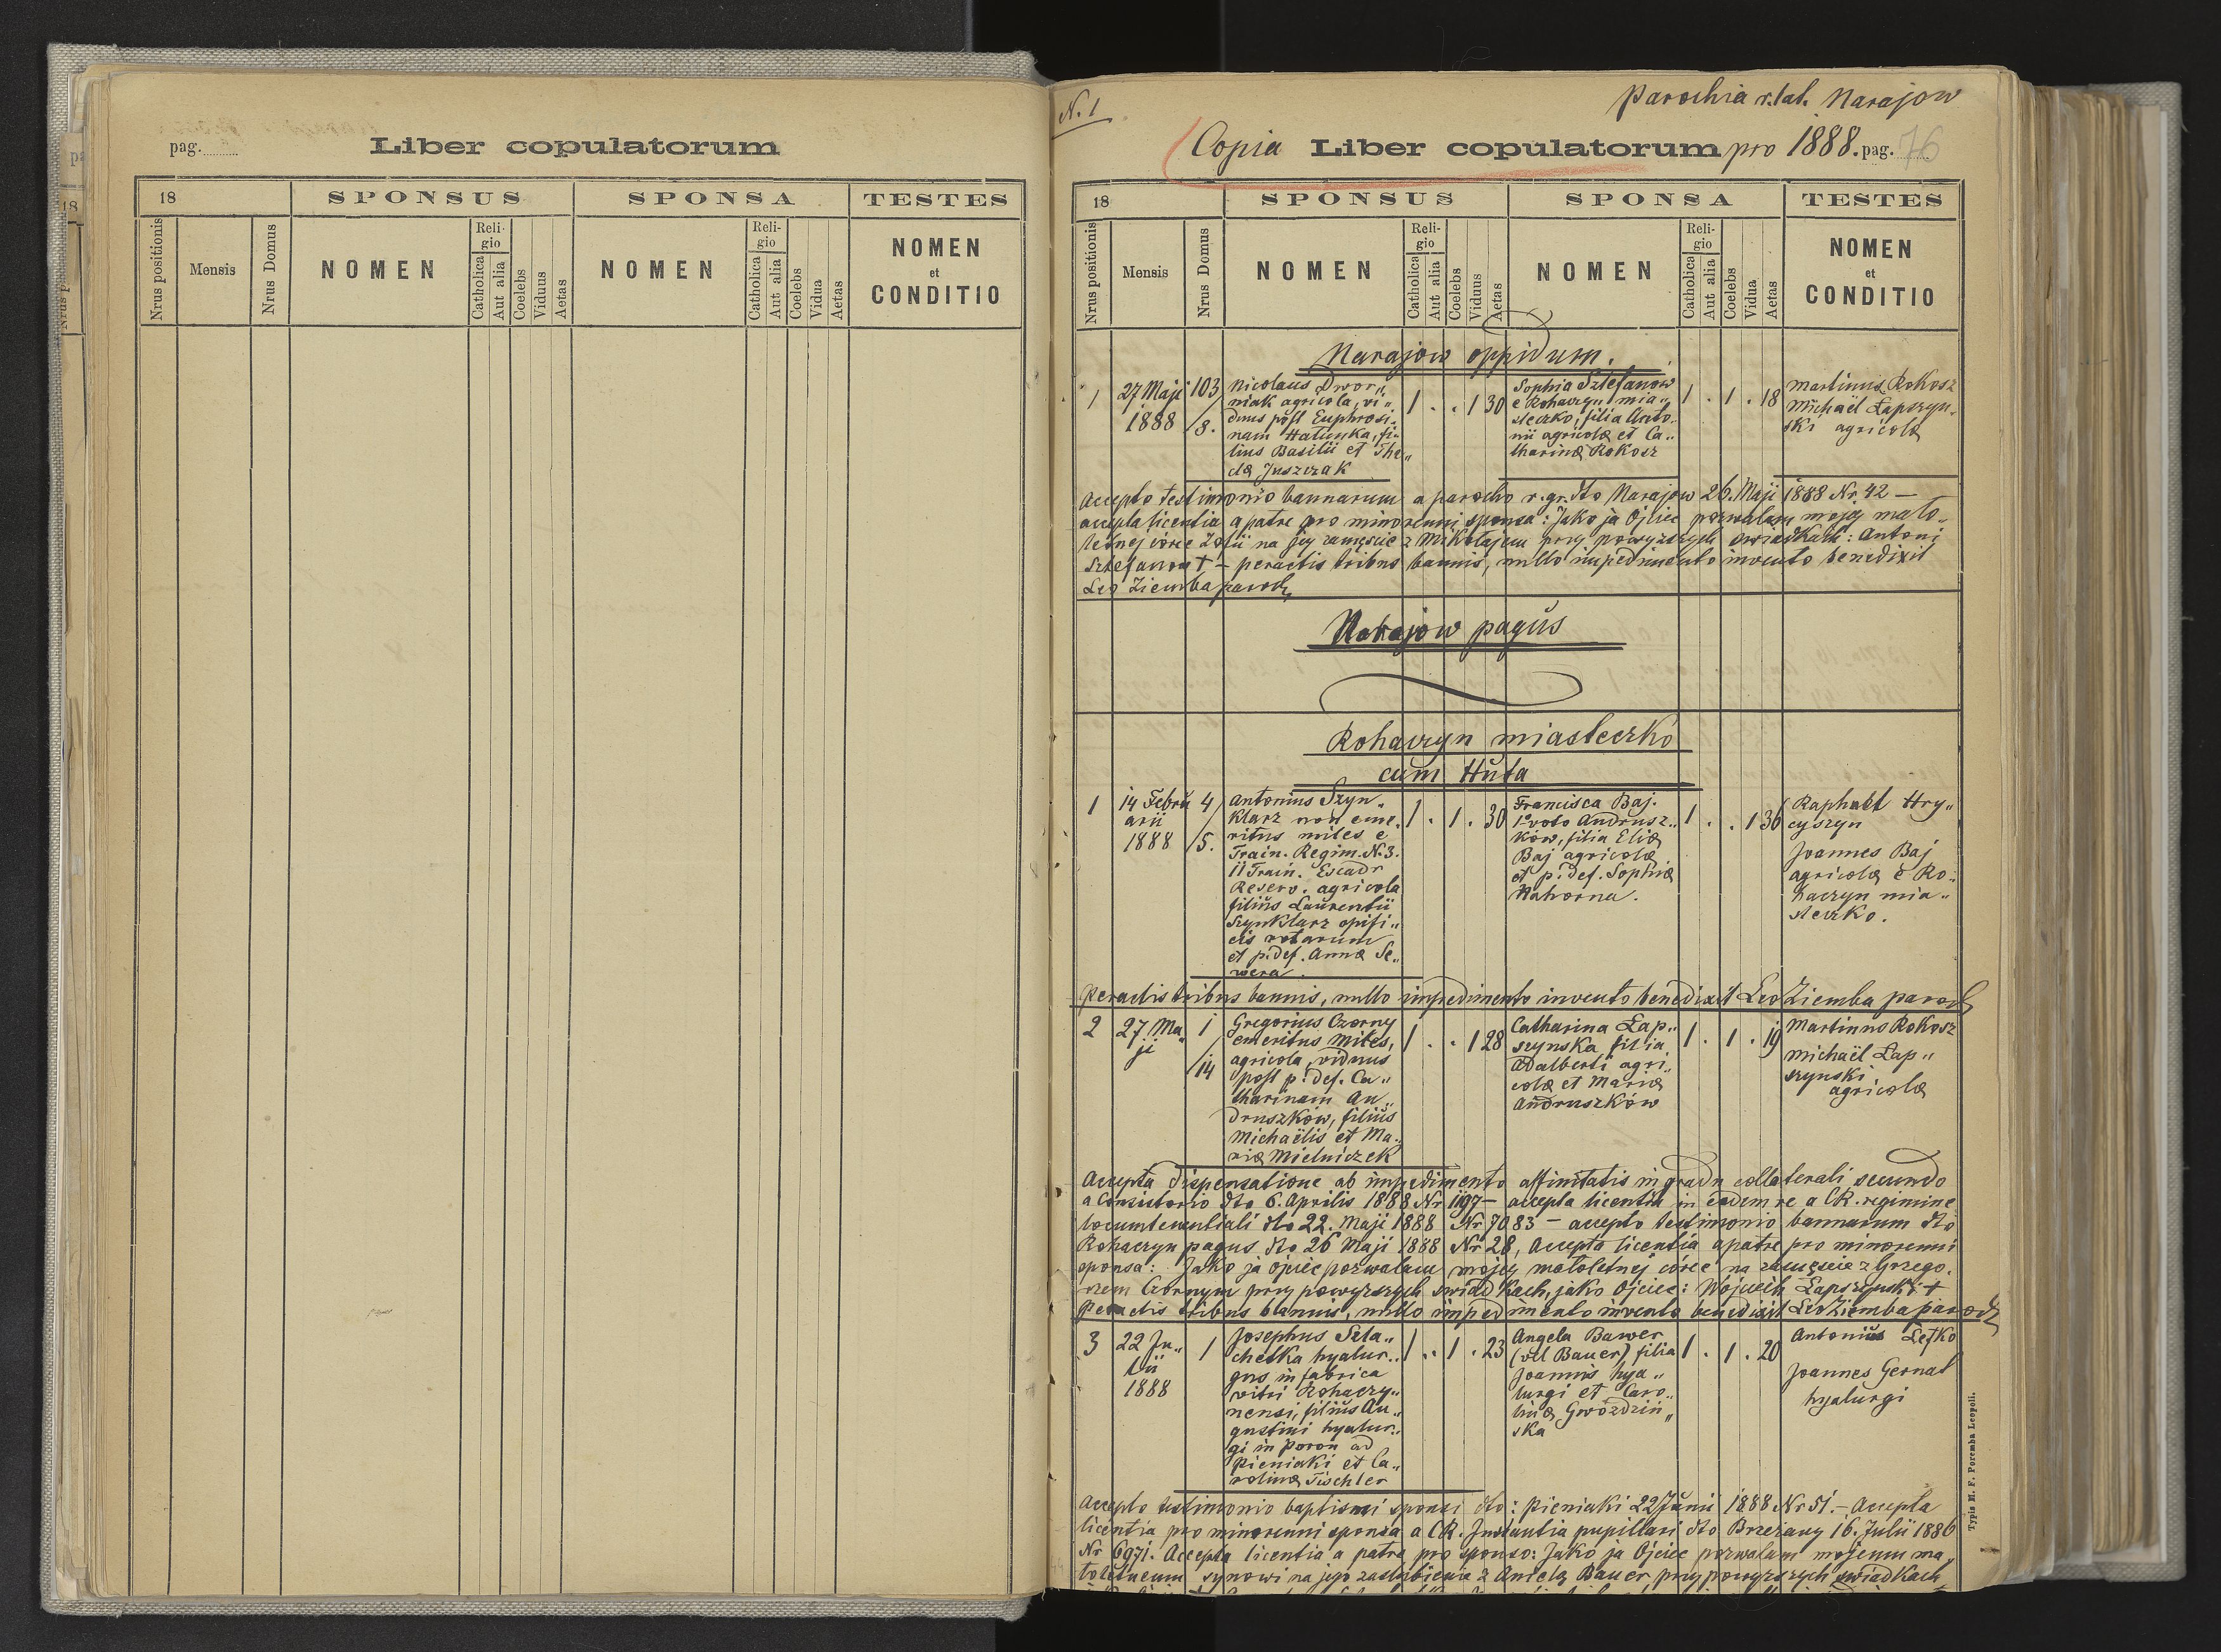 pag.
Liber copulatorum
18
SPONSUS
SPONSA
TESTES
Nrus positionis
Mensis
Nrus Domus
NOMEN
Religio
Catholica
Aut alia
Coelebs
Viduus
Aetas
NOMEN
Religio
Catholica
Aut alia
Coelebs
Vidua
Aetas
NOMEN
et
CONDITIO
N. 1
Parochia r. lat. Narajow
Copia Liber copulatorum pro 1888. pag. 76
18
SPONSUS
SPONSA
TESTES
Nrus positionis
Mensis
Nrus Domus
NOMEN
Religio
Catholica
Aut alia
Coelebs
Viduus
Aetas
NOMEN
Religio
Catholica
Aut alia
Coelebs
Vidua
Aetas
NOMEN
et
CONDITIO
Narajow oppidum.
1
27 Maji
1888
103/
/8.
Nicolaus Dwor„
niak agricola, vi„
duus post Euphrosi„
nam Hatunka, fi„
lius Basilii et The„
clæ Juszczak
1 . . 1 30
Sophia Sztefanow
e Rohaczyn mia„
steczko, filia Anto„
nii agricolæ et Ca„
tharinæ Rokosz
1 . 1 . 18
Martinus Rokosz
Michaël Łapszyn„
ski agricolæ
Accepto testimonio bannarum a parocho r. gr. dto Narajow 26. Maji 1888 Nr. 42 —
accepta licentia a patre pro minorenni sponsa: Jako ja Ojciec pozwalam mojej mało„
letnej córce Zofii na jej zamęscie z Mikołajem przy powyższych swiadkach: Antoni
Sztefanow † — peractis tribus bannis, nullo impedimento invento benedixit
Leo Ziemba paroch
Narajow pagus
Rohaczyn miasteczko
cum Huta
1
14 Febru
arii
1888
4/
/5.
Antonius Szyn„
klarz non eme„
ritus miles e
Train. Regim. N. 3.
11 Train. Escadr
Reserv. agricola
filius Laurentii
Szynklarz opifi„
cis rotarum
et p. def. Annæ Se„
wera.
1 . 1 . 30
Francisca Baj.
1º voto Andrusz„
ków, filia Eliæ
Baj agricolæ
et p. def. Sophiæ
Nahorna.
1 . . 1 36
Raphaël Hry„
cyszyn
Joannes Baj
agricolæ e Ro„
haczyn mia„
steczko.
Peractis tribus bannis, nullo impedimento invento benedixit Leo Ziemba paroch
2
27 Ma„
ji
1/
/14
Gregorius Czorny
emeritus miles,
agricola, viduus
post p. def. Ca„
tharinam An„
druszków, filius
Michaëlis et Ma„
riæ Mielniczek
1 . . 1 28
Catharina Łap„
szynska filia
Adalberti agri„
colæ et Mariæ
Andruszków
1 . 1 . 19
Martinus Rokosz
Michaël Łap„
szynski
agricolæ
Accepta dispensatione ab impedimento affinitatis in gradu collaterali secundo
a Consistorio dto 6. Aprilis 1888 Nr 1197 — accepta licentia in eadem re a CR. regimine
locumtenentiali dto 22. Maji 1888 Nr 7083 — accepto testimonio bannarum dto
Rohaczyn pagus dto 26 Maji 1888 Nr 28, Accepta licentia a patre pro minorenni
sponsa: Jako ja Ojciec pozwalam mojej małoletnej córce na zamęscie z Grzego„
rzem Czornym przy powyższych swiadkach, jako Ojciec: Wojciech Łapszynski †
Peractis tribus bannis, nullo impedimento invento benedixit Leo Ziemba paroch
3
22 Ju„
lii
1888
1
Josephus Szla„
chetka hyalur„
gus in fabrica
vitri Rohaczy„
nensi, filius Au„
gustini hyalur„
gi in Poron ad
Pieniaki et Ca„
rolinæ Tischler
1 . 1 . 23
Angela Bawer
(vel Bauer) filia
Joannis hya„
lurgi et Caro„
linæ Gwoździń„
ska
1 . 1 . 20
Antonius Letko
Joannes Gernat
hyalurgi
Accepto testimonio baptismi sponsi dto: Pieniaki 22 Junii 1888 Nr 51. — Accepta
licentia pro minorenni sponsa a CR. Instantia pupillari dto Brzeżany 16. Julii 1886
Nr 6971. Accepta licentia a patre pro sponso: Jako ja Ojciec pozwalam mojemu ma„
łoletnemu synowi na jego zaslubienie z Anielą Bauer przy powyższych swiadkach
Typis M. F. Poremba Leopoli.